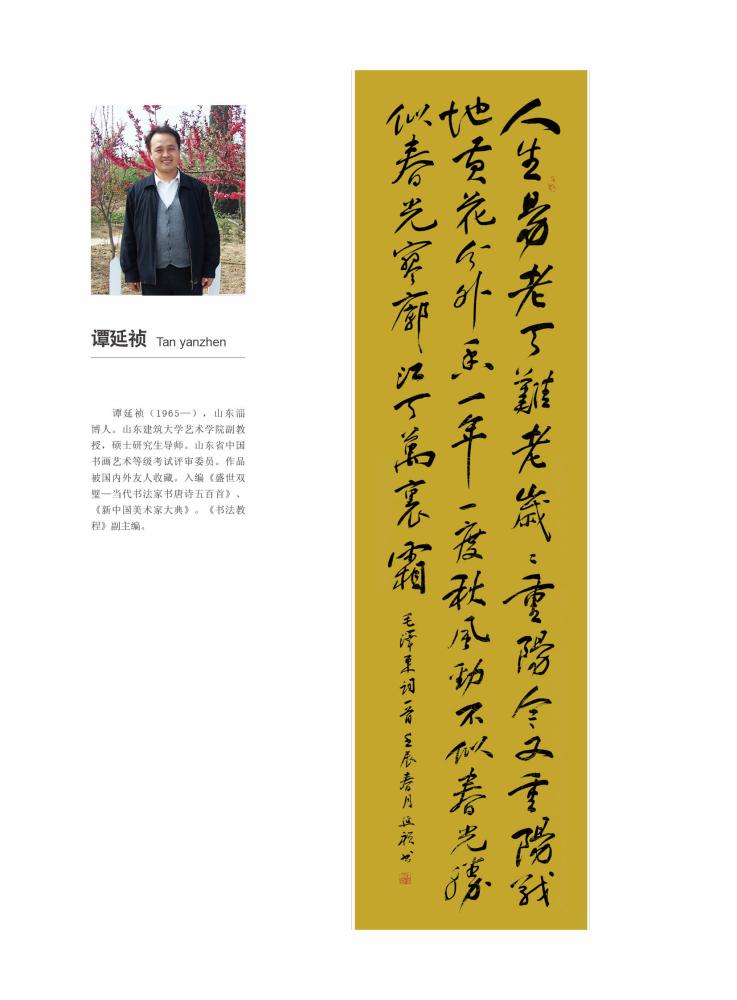 谭延祯 Tan yanzhen
谭延祯（1965—），山东淄
博人。山东建筑大学艺术学院副教
授，硕士研究生导师。山东省中国
书画艺术等级考试评审委员。作品
被国内外友人收藏。入编《盛世双
璧—当代书法家书唐诗五百首》、
《新中国美术家大典》。《书法教
程》副主编。
人生易老天難老歲〻重陽今又重陽戰
地黄花分外香一年一度秋風勁不似春光勝
似春光寥廓江天萬裏霜
毛澤東詞一首 壬辰春月延禎书